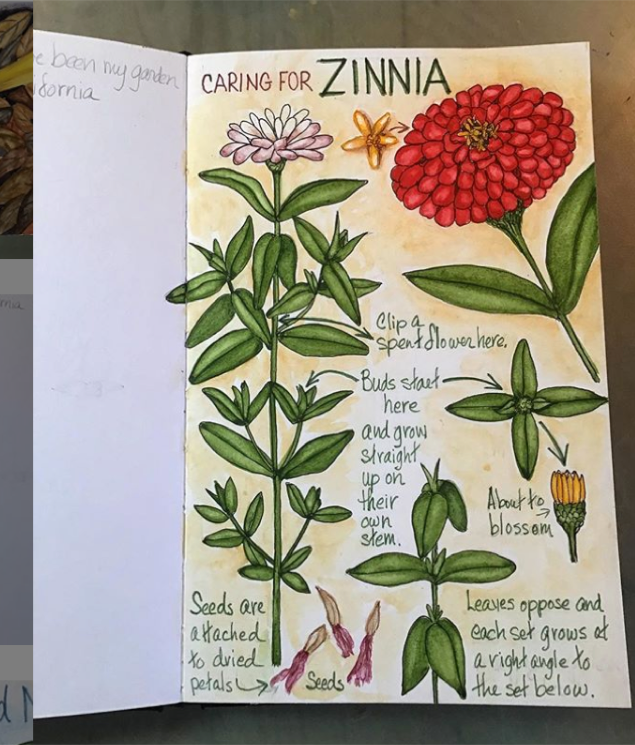 e been my garden
ifornia
CARING FOR ZINNIA
Clip a
spent flower here.
Buds start
here
and grow
straight
up on
their
own
stem.
About to
blossom
Seeds are
attached
to dried
petals
Seeds
Leaves oppose and
each set grows at
a right angle to
the set below.